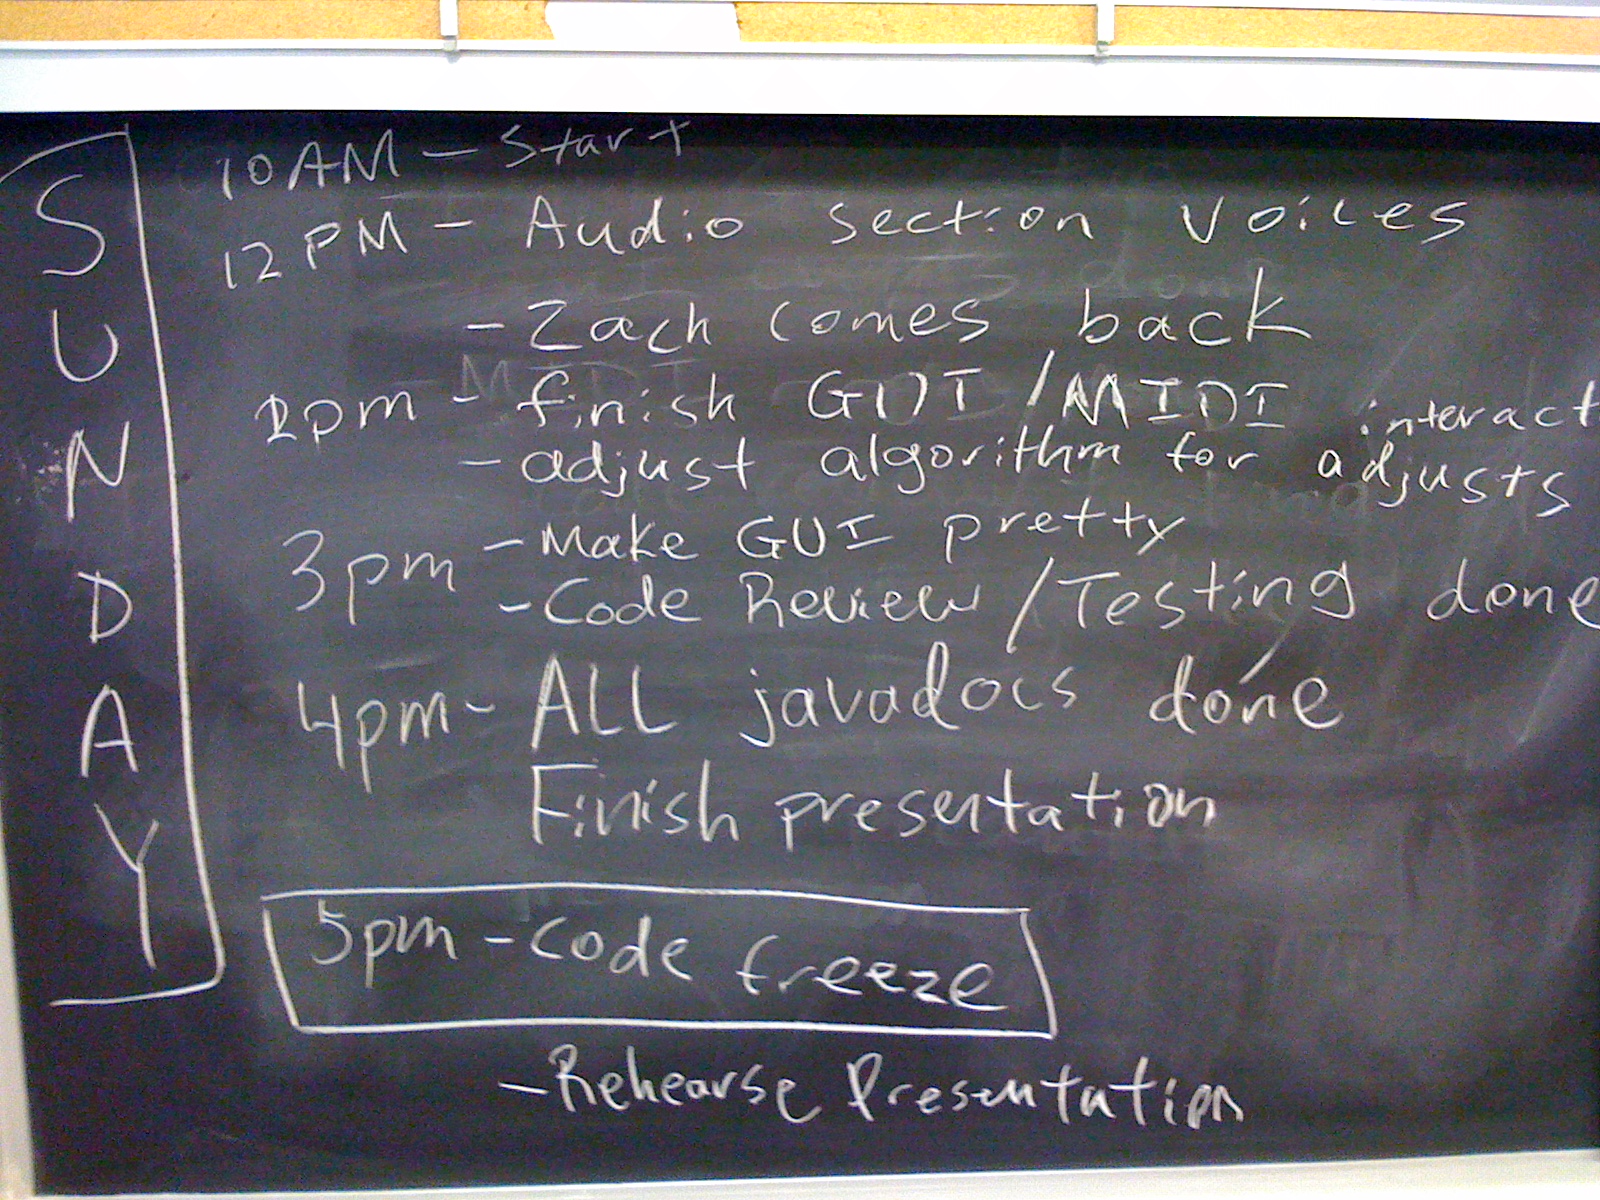 SUNDAY
10AM - Start
12PM - Audio section voices
- Zach comes back
2pm - finish GUI/MIDI interact
- adjust algorithm for adjusts
3pm - Make GUI pretty
- Code Review/Testing done
4pm - ALL javadocs done
Finish presentation
5pm - Code freeze
- Rehearse Presentation